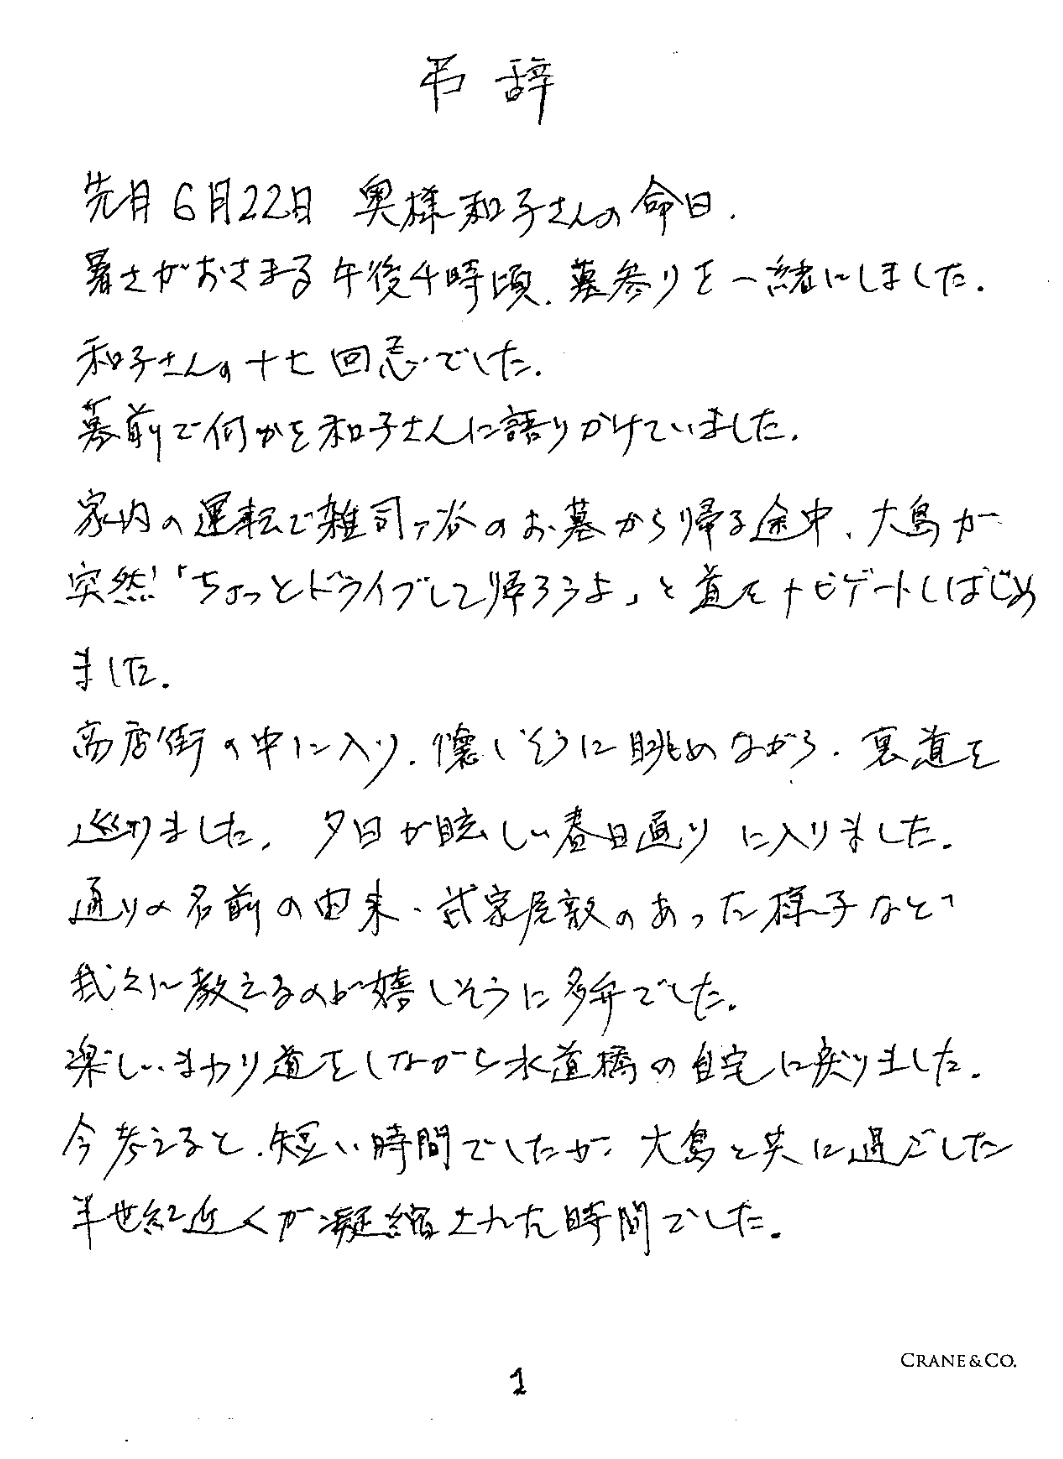 弔辞
先月6月22日 奥様和子さんの命日.
暑さがおさまる午後4時頃、墓参りを一緒にしました.
和子さんの十七回忌でした.
墓前で何かを和子さんに語りかけていました.
家内の運転で雑司ヶ谷のお墓から帰る途中、大島が
突然「ちょっとドライブして帰ろうよ」と道をナビゲートしはじめ
ました.
商店街の中に入り、懐しそうに眺めながら、裏道を
巡りました. 夕日が眩しい春日通りに入りました.
通りの名前の由来、武家屋敷のあった様子など
我々に教えるのが嬉しそうに多弁でした.
楽しいまわり道をしながら水道橋の自宅に戻りました.
今考えると、短い時間でしたが、大島と共に過ごした
半世紀近くが凝縮された時間でした.
CRANE & CO.
1